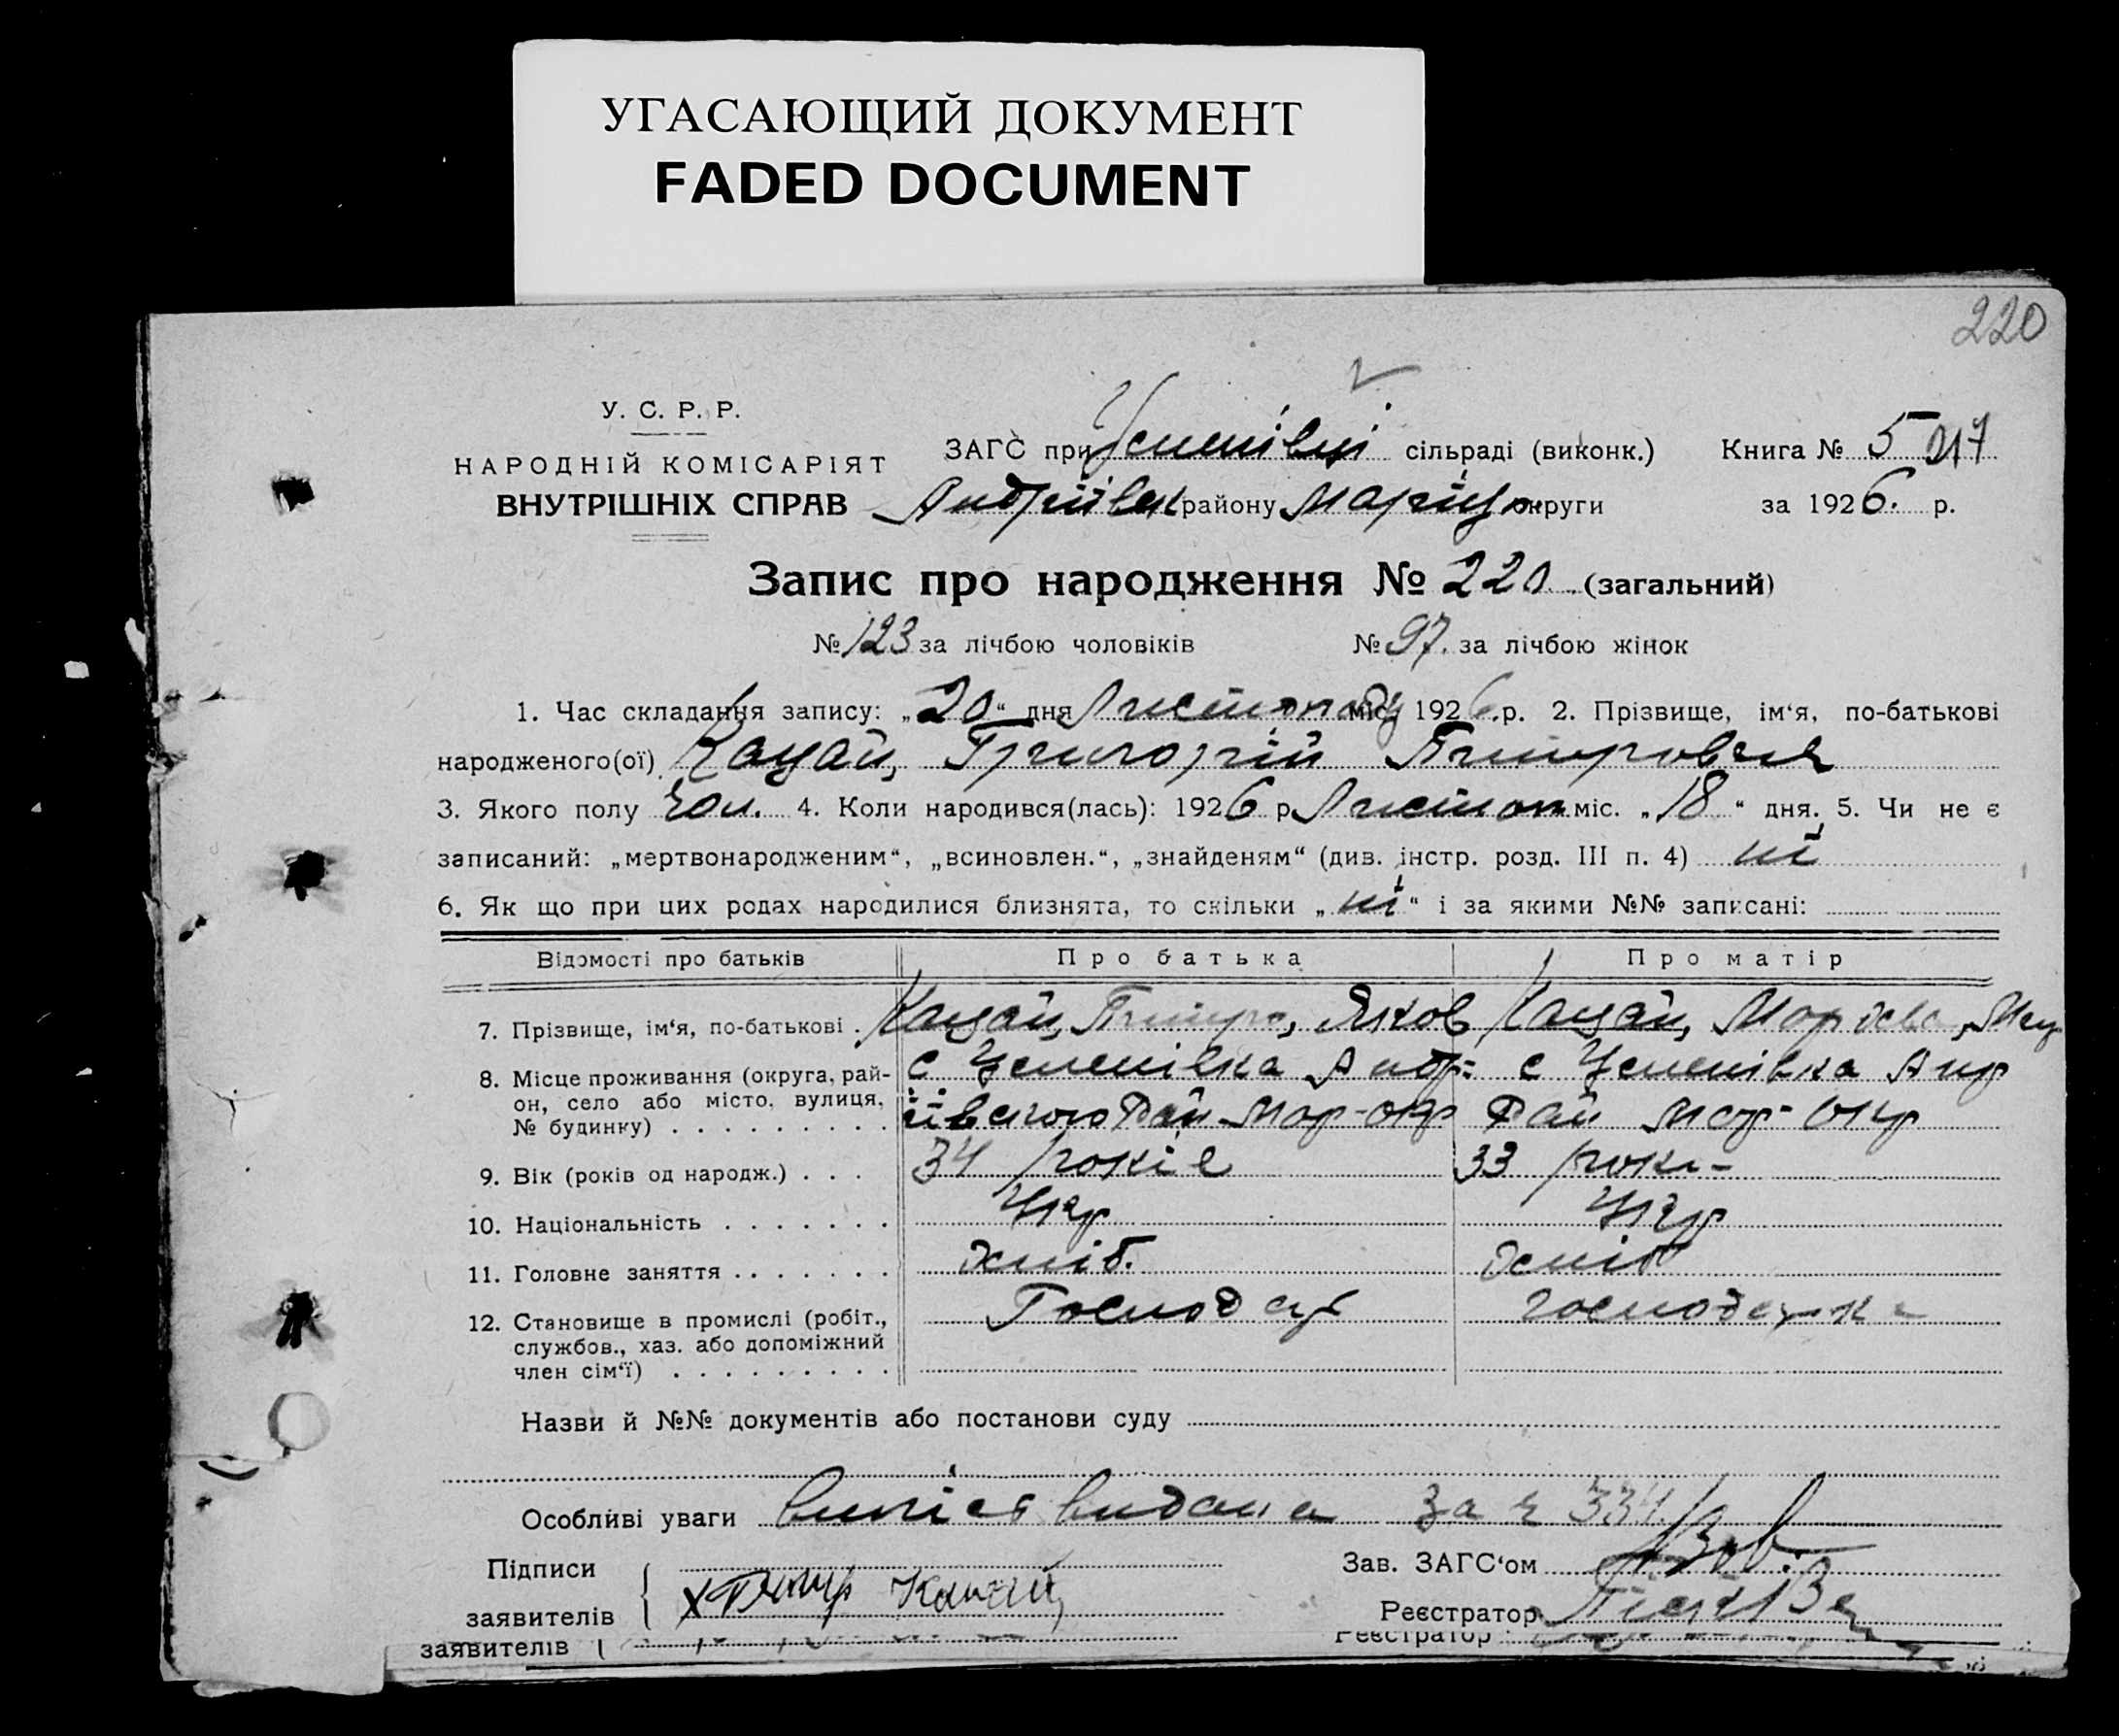 УГАСАЮЩИЙ ДОКУМЕНТ
FADED DOCUMENT
220
У. С. Р. Р.
НАРОДНІЙ КОМІСАРІЯТ
ВНУТРІШНІХ СПРАВ
ЗАГС при Успенівці сільраді (виконк.) Книга № 5 217
Андріївск району Маріуп округи за 1926. р.
Запис про народження № 220 (загальний)
№ 123 за лічбою чоловіків № 97. за лічбою жінок
1. Час складання запису: „20“ дня Листопаду міс. 1926.р. 2. Прізвище, ім‘я, по-батькові
народженого(ої) Кацай, Григорій Петрович
3. Якого полу Чол. 4. Коли народився(лась): 1926 р. Листоп міс. „18“ дня. 5. Чи не є
записаний: „мертвонародженим“, „всиновлен.“, „знайденям“ (див. інстр. розд. III п. 4) ні
6. Як що при цих родах народилися близнята, то скільки „ні“ і за якими №№ записані:
Відомості про батьків Про батька Про матір
7. Прізвище, ім‘я, по-батькові . Кацай, Петро, Яков Кацай,
8. Місце проживання (округа, рай- с Успенівка Андр= с Успенівка Андр
он, село або місто, вулиця, їівского Рай Мар-окр Рай Мар-Окр
№ будинку) . . . . . . . . .
9. Вік (років од народж.) . . . 34 років 33 роки-
10. Національність . . . . . . . Укр Укр
11. Головне заняття . . . . . . . хліб. хліб
12. Становище в промислі (робіт., Господар господарка
службов., хаз. або допоміжний
член сім‘ї) . . . . . . . . .
Назви й №№ документів або постанови суду
Особливі уваги випіс видана за ч 334
Підписи Зав. ЗАГС‘ом
заявителів Петр Кацай Реєстратор
заявителів Реєстратор